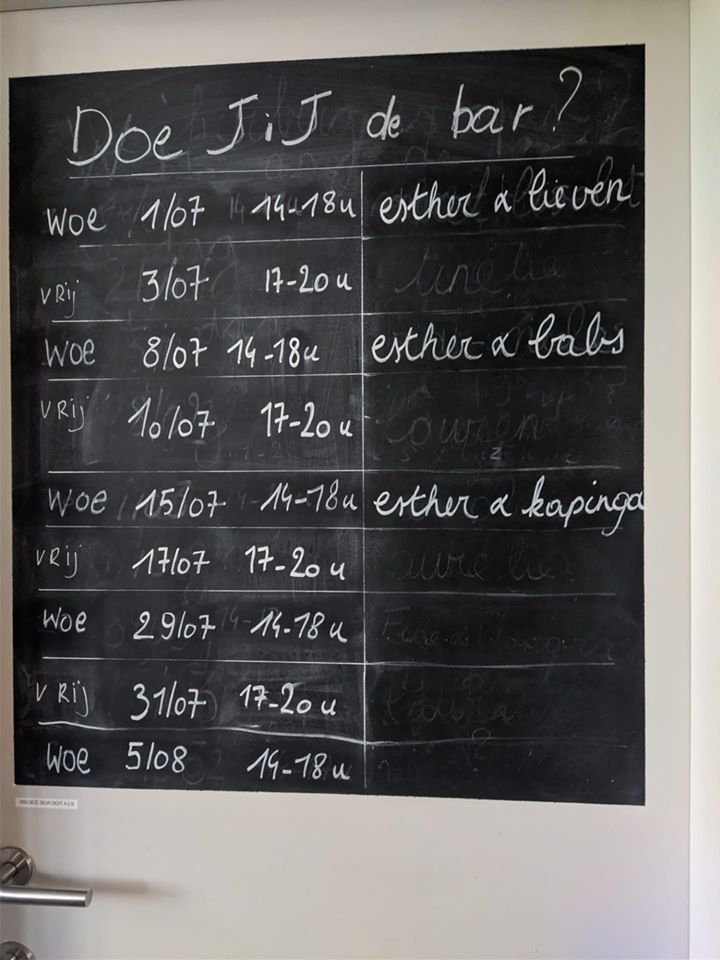 Doe JiJ de bar?
Woe 1/07 14-18u esther & lieven
VRij 3/07 17-20u
Woe 8/07 14-18u esther & babs
VRij 10/07 17-20u
Woe 15/07 14-18u esther & kapinga
VRij 17/07 17-20u
Woe 29/07 14-18u
VRij 31/07 17-20u
Woe 5/08 14-18u
HOU DEZE DEUR DICHT A.U.B.